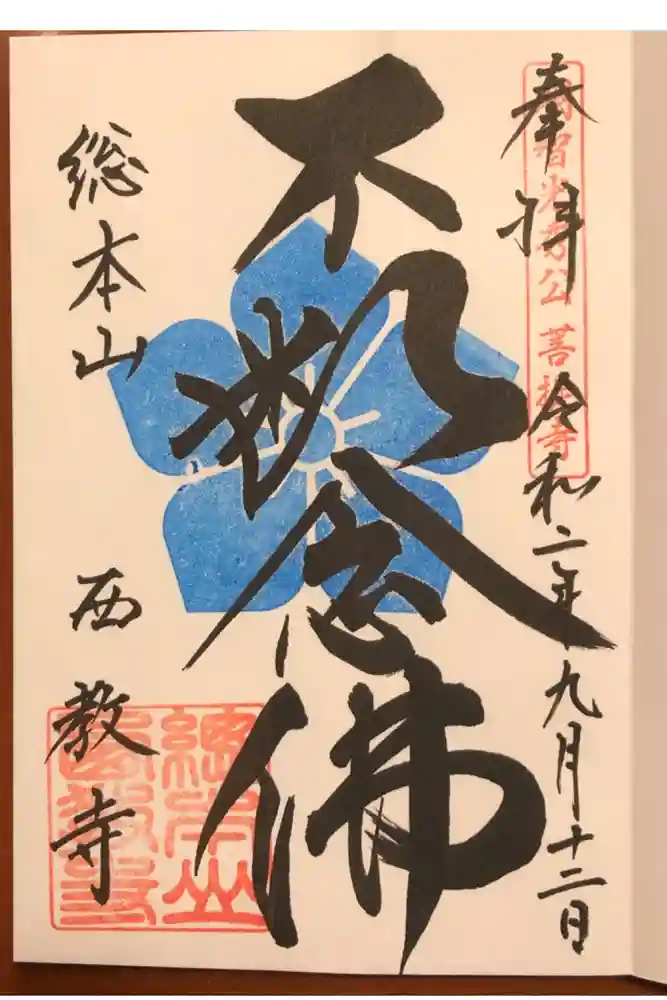 奉拝
令和二年九月十二日
明智光秀公菩提寺
不断念佛
総本山
西教寺
總本山
西教寺